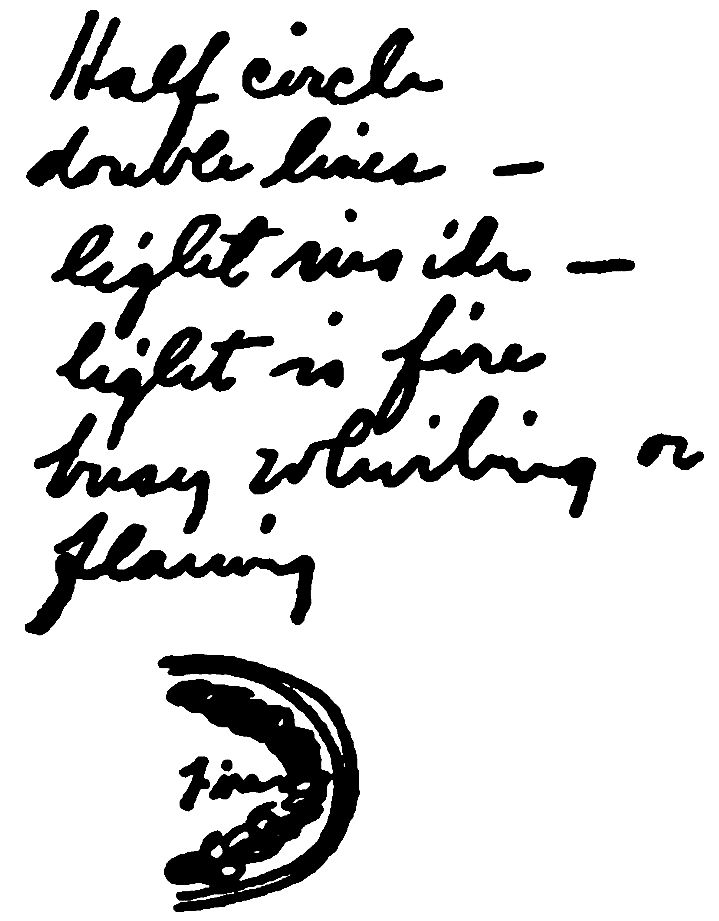 Half circle
double lines —
light inside —
light is fire
busy whirling or
flaming
Fire